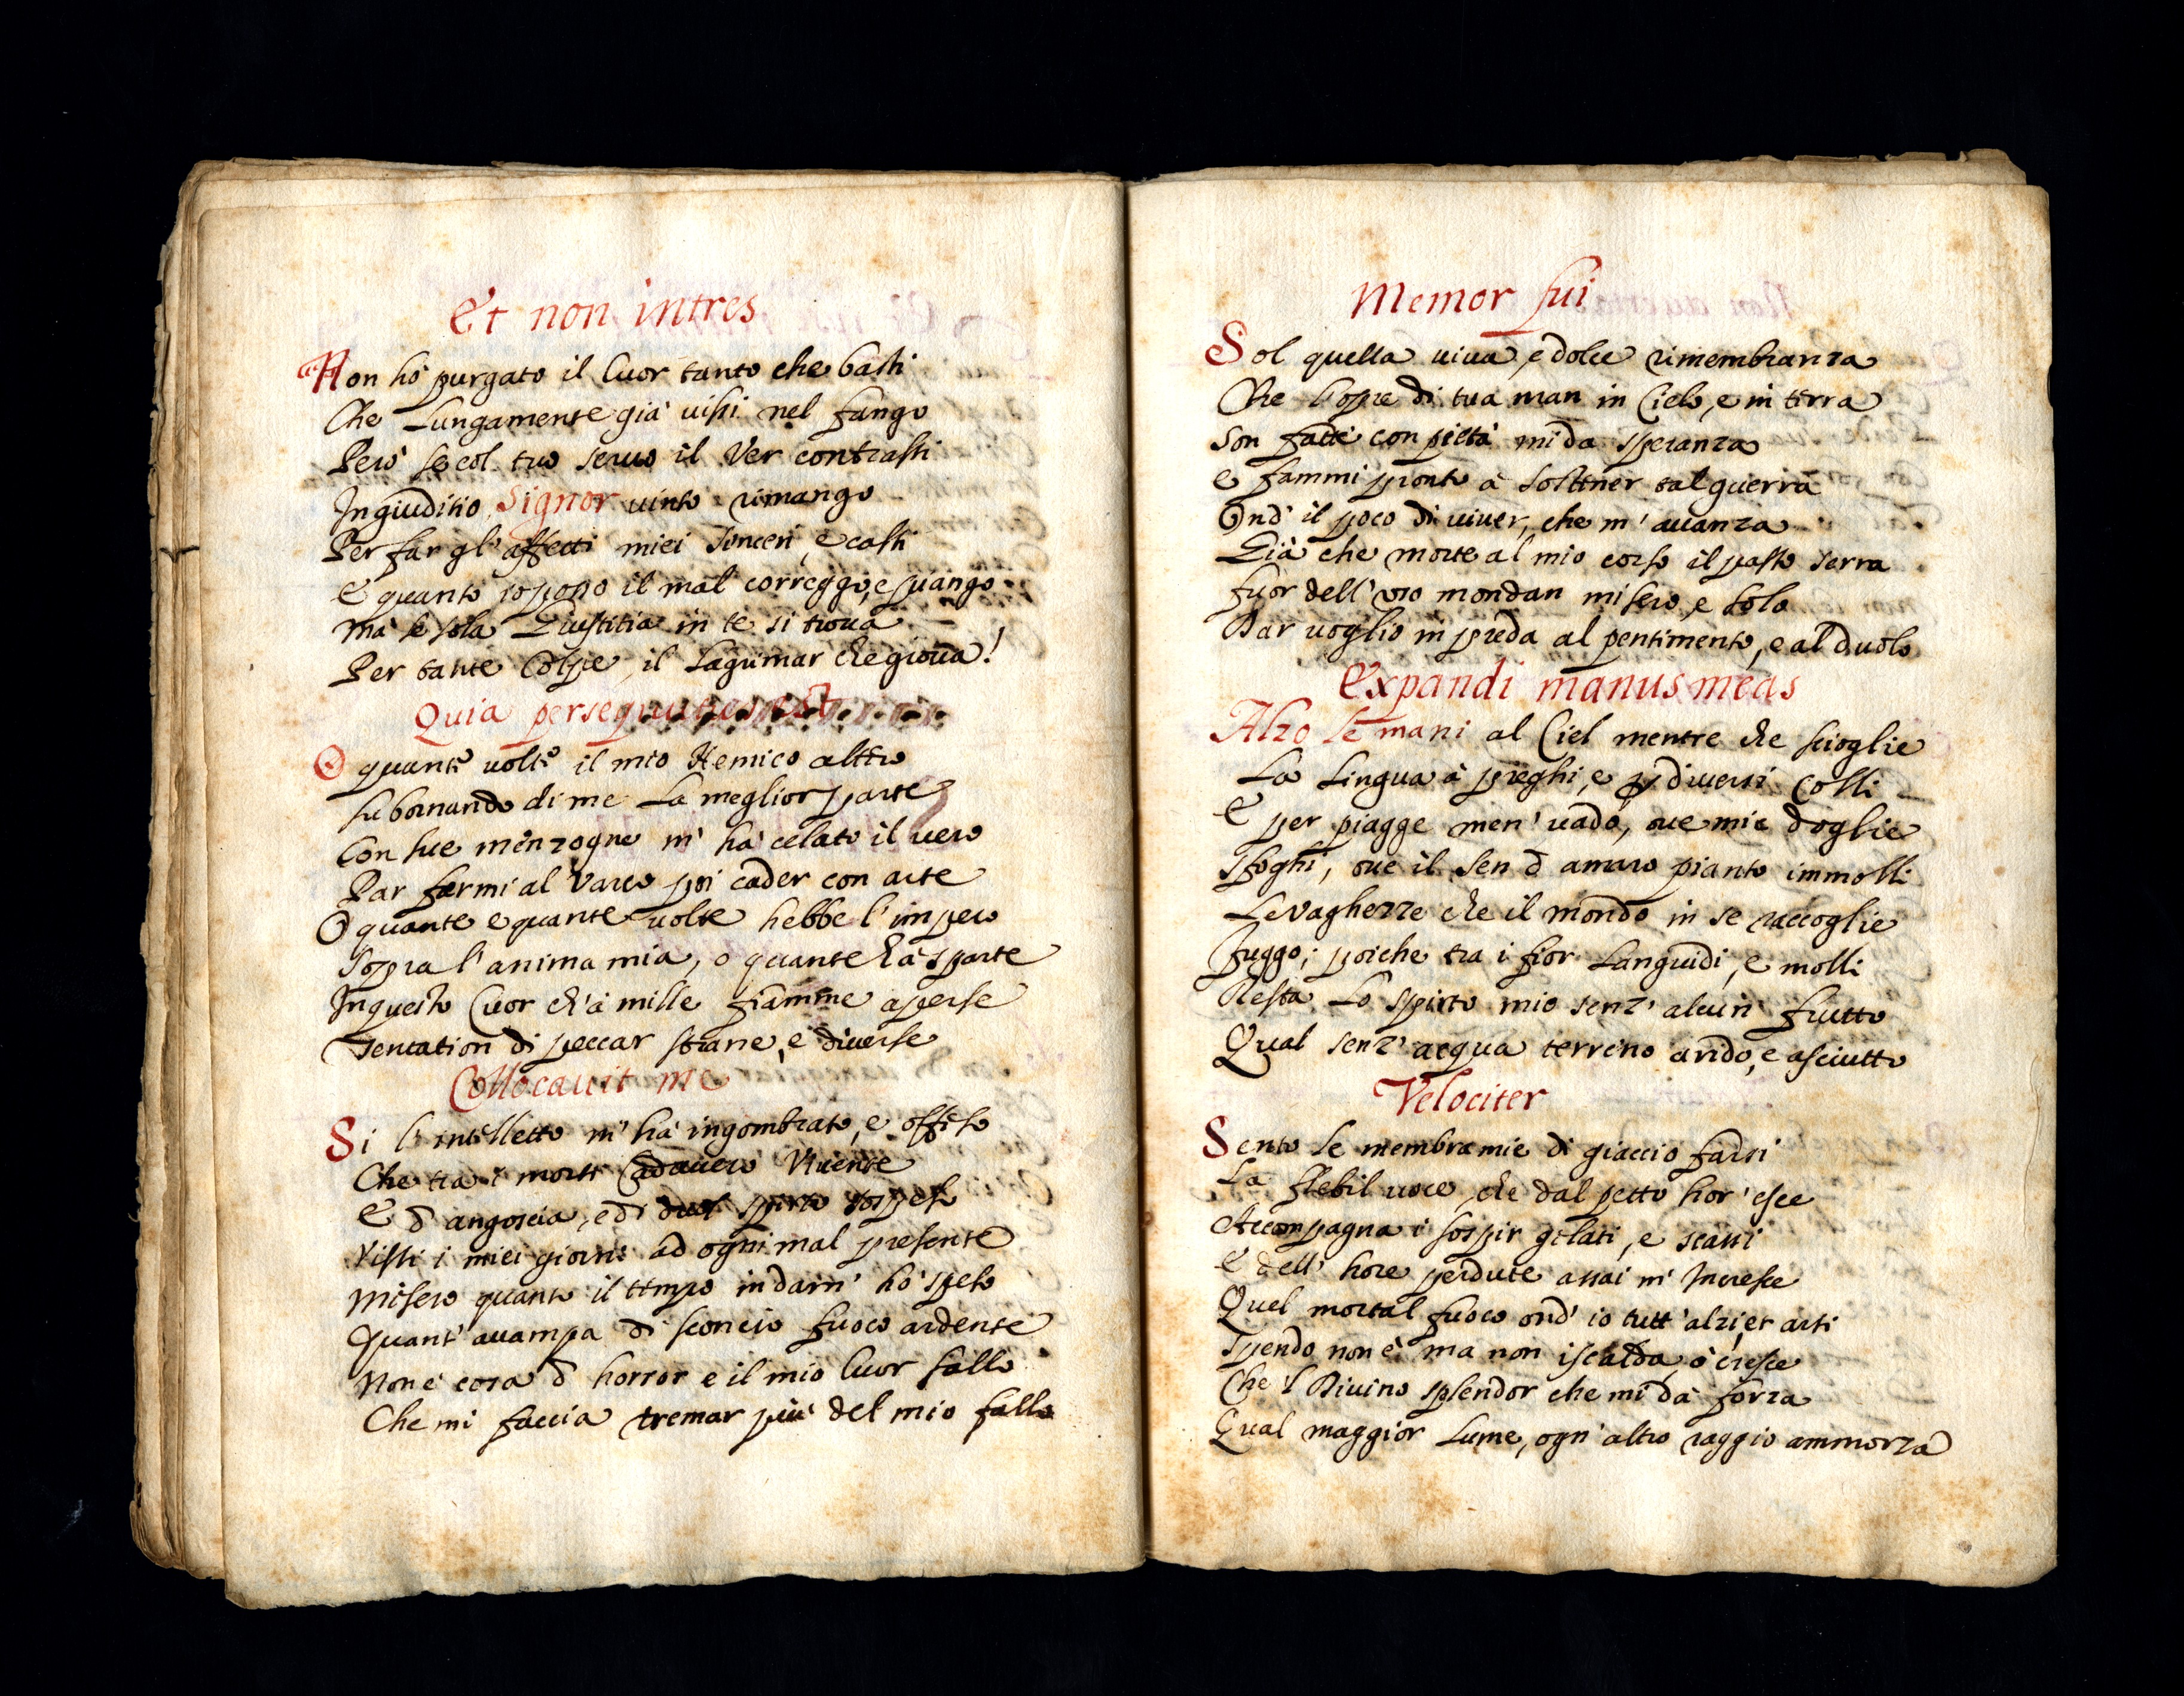 Et non intres
Non hò purgato il Cuor tanto che basti
Che Lungamente già uissi nel fango
Però se col tuo seruo il Ver contrasti
In giuditio Signor uinto rimango
Per far gl' affetti miei sinceri, e casti
E quanto io posso il mal correggo, e piango
Mà se sola Giustitia in te si troua
Per tante Colpe, il Lagrimar che gioua!
Quia persequutus est
O quante uolte il mio Nemico altero
Subornando di me La meglior parte
Con sue menzogne m' hà celato il uero
Par farmi al Varco poi cader con arte
O quante e quante uolte hebbe l' impero
Sopra l' anima mia, o quante hà sparte
In questo Cuor ch' à mille fiamme asperse
Tentation di peccar strane, e diuerse
Collocauit me
Si l' intelletto m' hà ingombrato, e offeso
Che tra i morti Cadauero Viuente
E d' angoscia, e di duol spirto sospeso
Vissi i miei giorni ad ogni mal presente
Misero quanto il tempo indarn' hò speso
Quant' auampa di sconcio fuoco ardente
Non è cosa d' horror e il mio Cuor sallo
Che mi faccia tremar più del mio fallo
Memor fui
Sol quella uiua, e dolce rimembranza
Che l' opre di tua man in Cielo, e in terra
Son fatte con pietà mi da speranza
e fammi pronto à sostener tal guerra
Ond' il poco di uiuer, che m' auanza
Già che morte al mio corso il passo serra
fuor dell' uso mondan misero, e solo
Dar uoglio in preda al pentimento, e al duolo
Expandi manus meas
Alzo le mani al Ciel mentre che scioglie
La Lingua à preghi, e p diuersi Colli
E per piagge men' uado, oue mie doglie
Sfoghi, oue il sen d' amaro pianto immolli
Le vaghezze che il mondo in se raccoglie
fuggo; poiche tra i fior Languidi, e molli
Resta Lo spirto mio senz' alcun' frutto
Qual senz' acqua terreno arido, e asciutto
Velociter
Sento le membra mie di giaccio farsi
La flebil uoce, che dal petto hor' esce
Accompagna i sospir gelati, e scarsi
E dell' hore perdute assai m' Incresce
Quel mortal fuoco ond' io tutt' alzi, et arsi
Spendo non è ma non iscalda, ò cresce
Che 'l Diuino splendor che mi dà forza
Qual maggior Lume, ogn' altro raggio ammorza